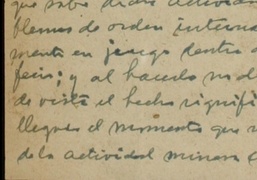 que sobre dichas actividad
blemas de orden interna
mente en juego dentro d
feis; y al hacerlo no d
de vista el hecho signifi
llegado el momento que n
de la actividad minera e